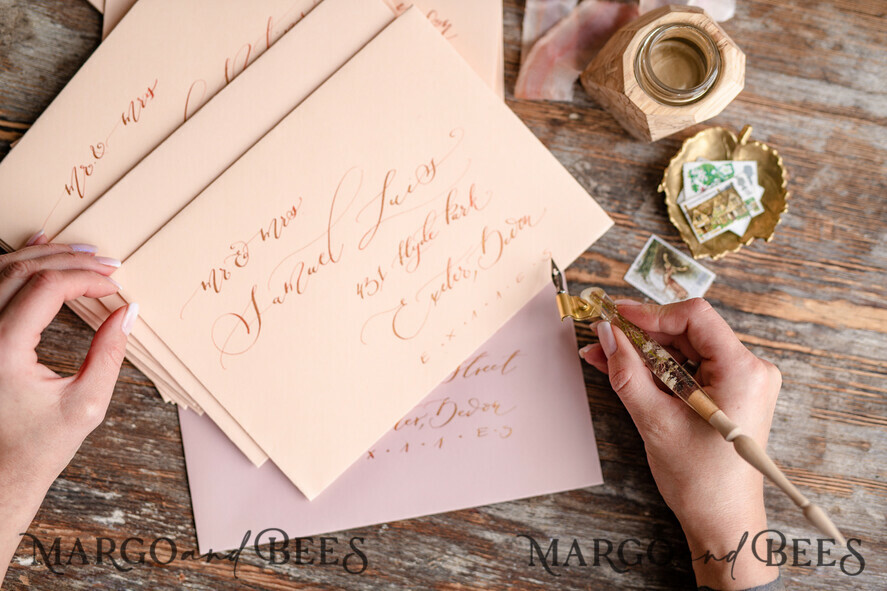 mr & mrs
mr & mrs
Samuel Lucas
431 Hyde Park
Exeter, Devon
E • X • 1 • 1 • E
Street
Devon
X • 1 • 1 • E J
MARGO and BEES
MARGO and BEES